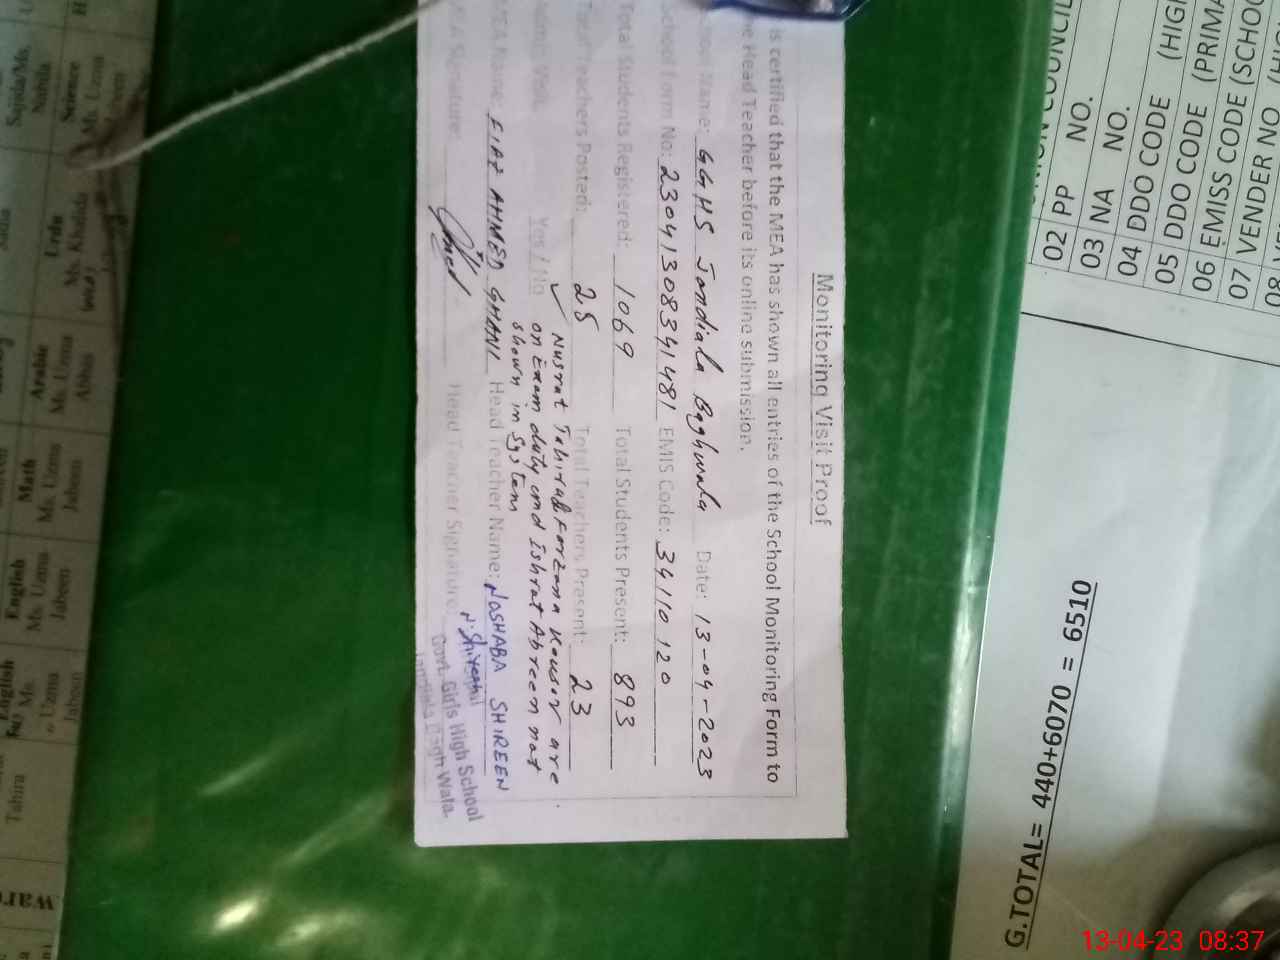 Monitoring Visit Proof
is certified that the MEA has shown all entries of the School Monitoring Form to
Head Teacher before its online submission.
Name: GGHS Jandiala Baghwala Date: 13-04-2023
School Form No: 23041308341481 EMIS Code: 34110120
Total Students Registered: 1069 Total Students Present: 893
Total Teachers Posted: 25 Total Teachers Present: 23
Admin Visit: Yes / No ✓ Nusrat Farzana Kousar are
on Exam duty and Ishrat Abreen not
shown in System
MEA Name: FIAZ AHMED GHANI Head Teacher Name: NASHABA SHIREEN
Signature: Head Teacher Signature: N.Shireen
Govt. Girls High School
Jandiala Bagh Wala
02 PP NO.
03 NA NO.
04 DDO CODE (HIGH
05 DDO CODE (PRIMA
06 EMISS CODE (SCHOO
07 VENDER NO
08
G.TOTAL= 440+6070 = 6510
Science
Ms. Uzma
Jabeen
Urdu
Ms. Khalida
Arabic
Ms. Uzma
Abbas
Math
Ms. Uzma
Jabeen
English
Ms. Uzma
Jabeen
English
Ms.
Uzma
Jabeen
Tahira
13-04-23 08:37